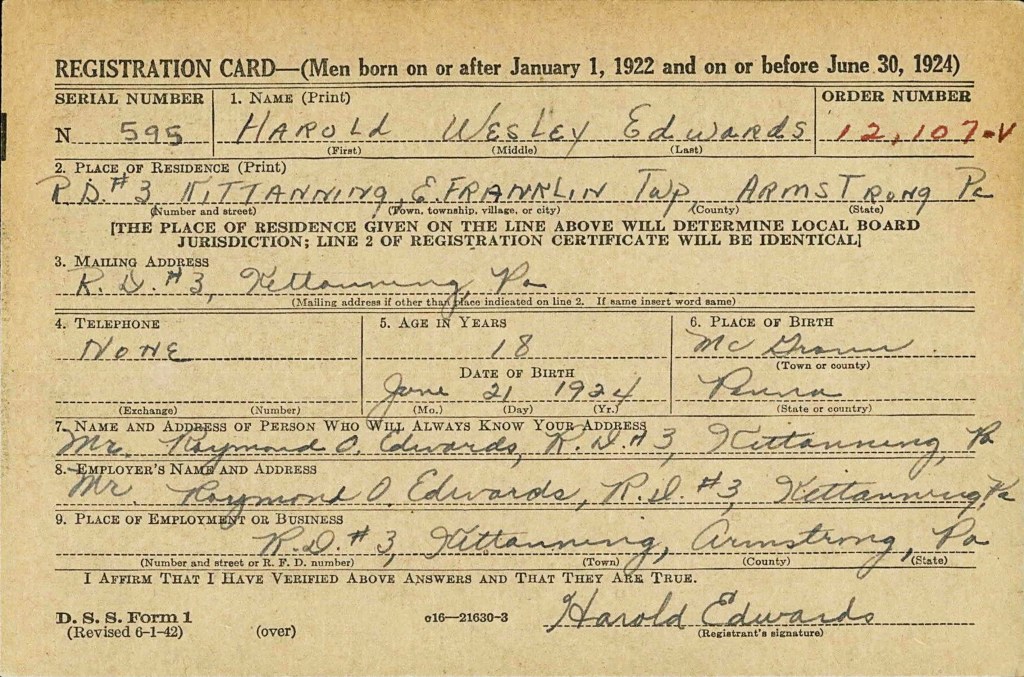 REGISTRATION CARD—(Men born on or after January 1, 1922 and on or before June 30, 1924)
SERIAL NUMBER 1. NAME (Print) ORDER NUMBER
N 595 HAROLD WESLEY EDWARDS 12,107-V
(First) (Middle) (Last)
2. PLACE OF RESIDENCE (Print)
R.D. #3, KITTANNING, E. FRANKLIN TWP, ARMSTRONG Pa
(Number and street) (Town, township, village, or city) (County) (State)
[THE PLACE OF RESIDENCE GIVEN ON THE LINE ABOVE WILL DETERMINE LOCAL BOARD
JURISDICTION; LINE 2 OF REGISTRATION CERTIFICATE WILL BE IDENTICAL]
3. MAILING ADDRESS
R. D. #3, Kittanning, Pa
(Mailing address if other than place indicated on line 2. If same insert word same)
4. TELEPHONE 5. AGE IN YEARS 6. PLACE OF BIRTH
NONE 18 Mc Grann
(Town or county)
DATE OF BIRTH
June 21 1924 Penna
(Exchange) (Number) (Mo.) (Day) (Yr.) (State or country)
7. NAME AND ADDRESS OF PERSON WHO WILL ALWAYS KNOW YOUR ADDRESS
Mr. Raymond O. Edwards, R.D. #3, Kittanning, Pa
8. EMPLOYER'S NAME AND ADDRESS
Mr. Raymond O. Edwards, R.D. #3, Kittanning, Pa
9. PLACE OF EMPLOYMENT OR BUSINESS
R.D. #3, Kittanning, Armstrong, Pa
(Number and street or R. F. D. number) (Town) (County) (State)
I AFFIRM THAT I HAVE VERIFIED ABOVE ANSWERS AND THAT THEY ARE TRUE.
D. S. S. Form 1 o16—21630-3 Harold Edwards
(Revised 6-1-42) (over) (Registrant's signature)